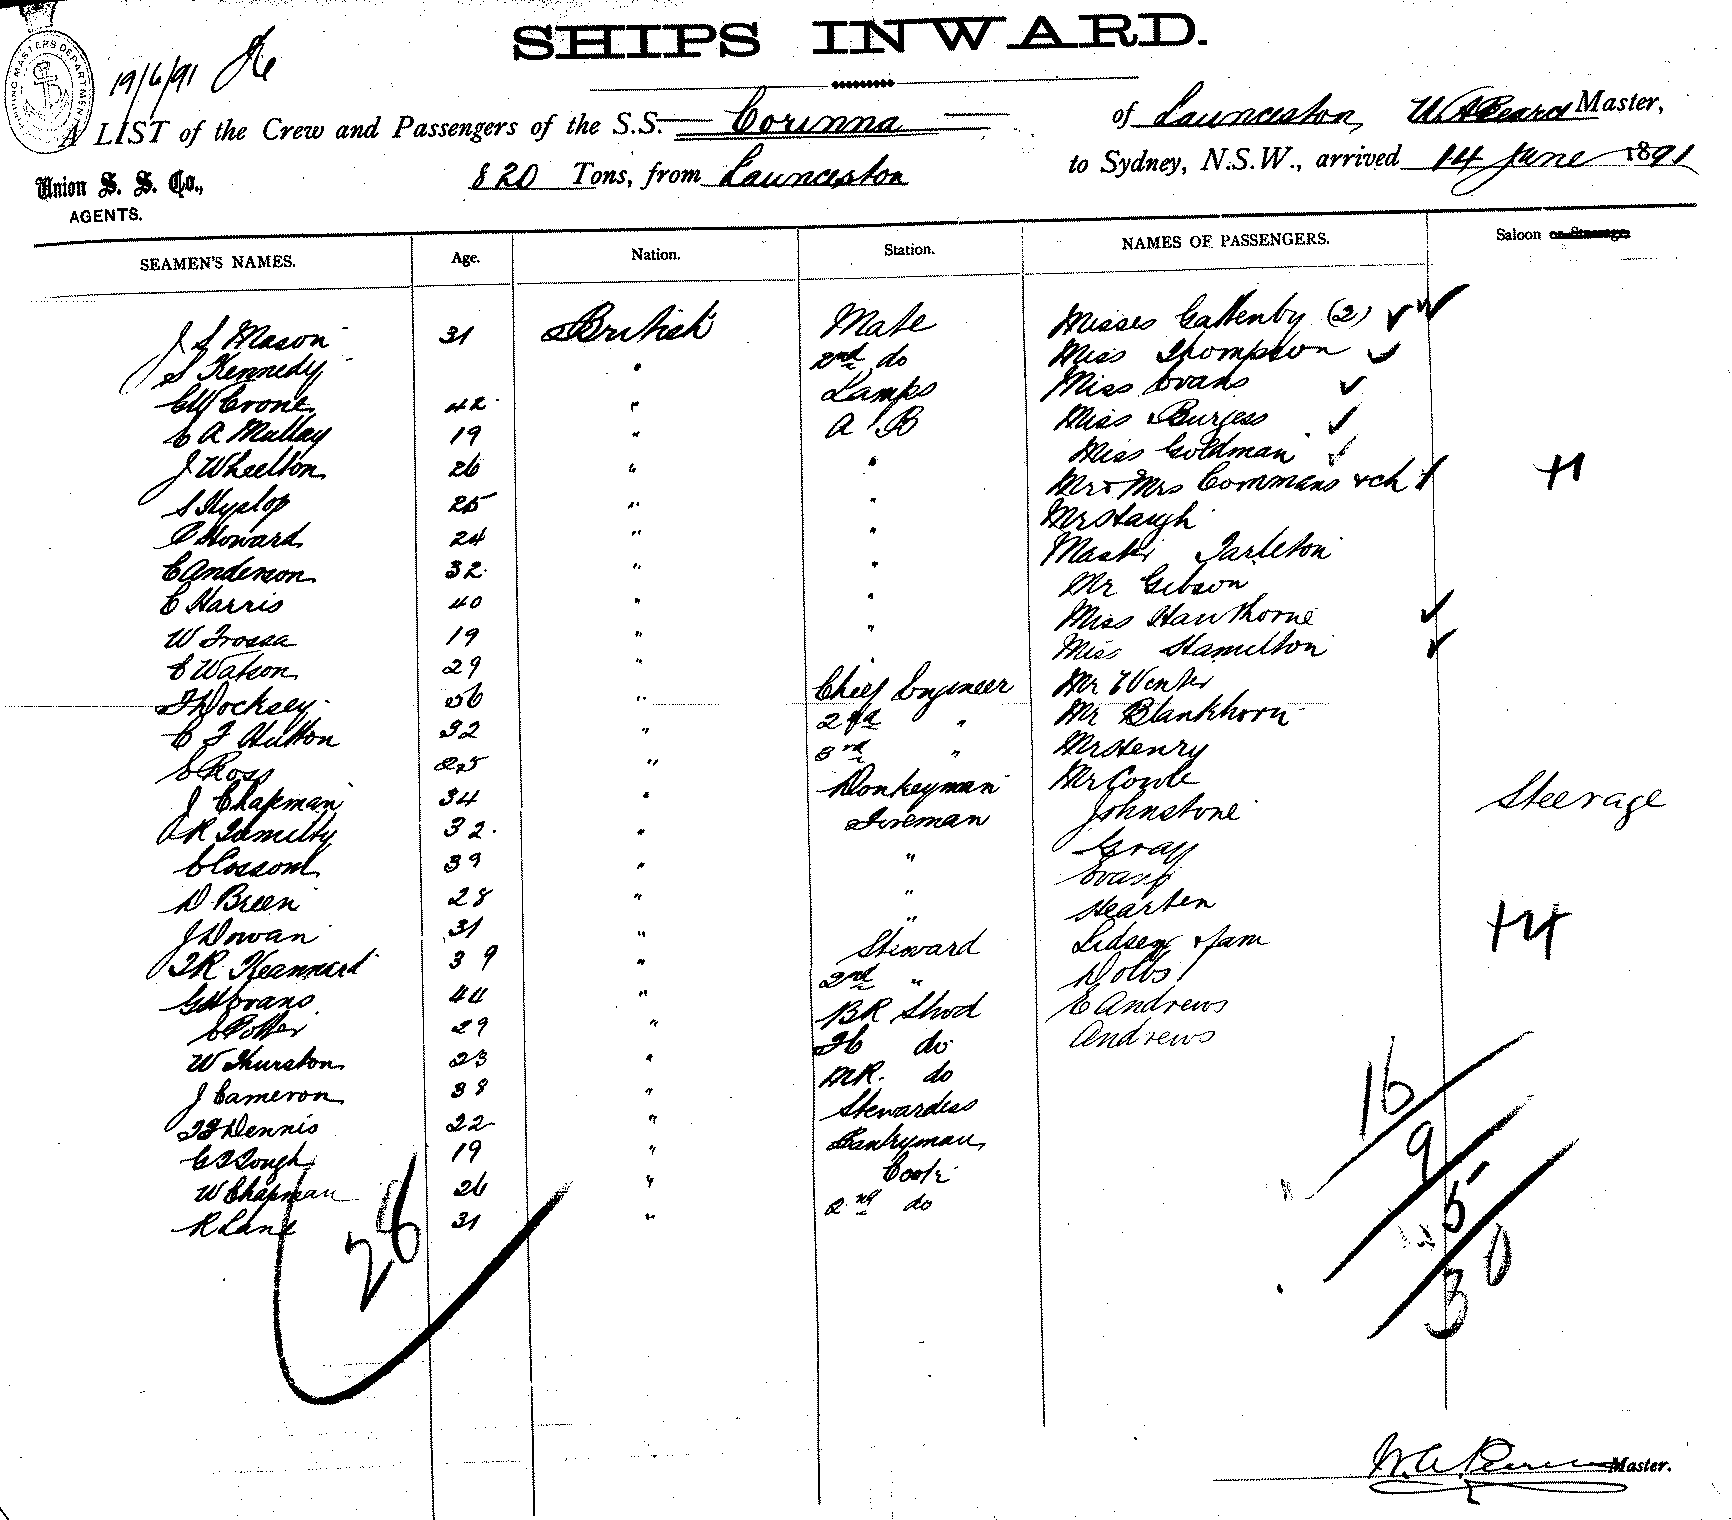 SHIPS INWARD.
19/6/91
A LIST of the Crew and Passengers of the S.S. Corinna of Launceston, W A Peard Master,
820 Tons, from Launceston to Sydney, N.S.W., arrived 14 June 1891
Union S. S. Co.,
AGENTS.
SEAMEN'S NAMES. Age. Nation. Station. NAMES OF PASSENGERS. Saloon or Steerage.
J S Mason 31 British Mate Misses Gattenby (2)
S Kennedy " 2nd do Miss Thompson
C W Crone 42 " Lamps Miss Evans
E A Mullay 19 " A B Miss Burgess
J Wheelton 26 " " Miss Goldman
S Hyslop 25 " " Mr & Mrs Commans & ch
P Howard 24 " " Mr Haugh
C Anderson 32 " " Master Tarleton
C Harris 40 " " Mr Gibson
W Trossa 19 " " Miss Hawthorne
E Watson 29 " " Miss Hamilton
T Docksey 56 " Chief Engineer Mr Wenter
C F Hutton 32 " 2nd " Mr Blankhorn
C Ross 25 " 3rd " Mr Henry
J Chapman 34 " Donkeyman Mr Cowle
R Tumilty 32 " Fireman Johnstone Steerage
C Cossom 39 " " Gray
D Breen 28 " " Evans
J Dowan 31 " " Hearten
T R Keannard 39 " Steward Lidsey & fam
G H Evans 44 " 2nd " Dobbs
C Potter 29 " BR Stwd E Andrews
W Thurston 23 " do Andrews
J Cameron 38 " MR. do
T F Dennis 22 " Stewardess
C T Tough 19 " Pantryman
W Chapman 26 " Cook
R Lane 31 " 2nd do
28
16
9
5
30
Master.